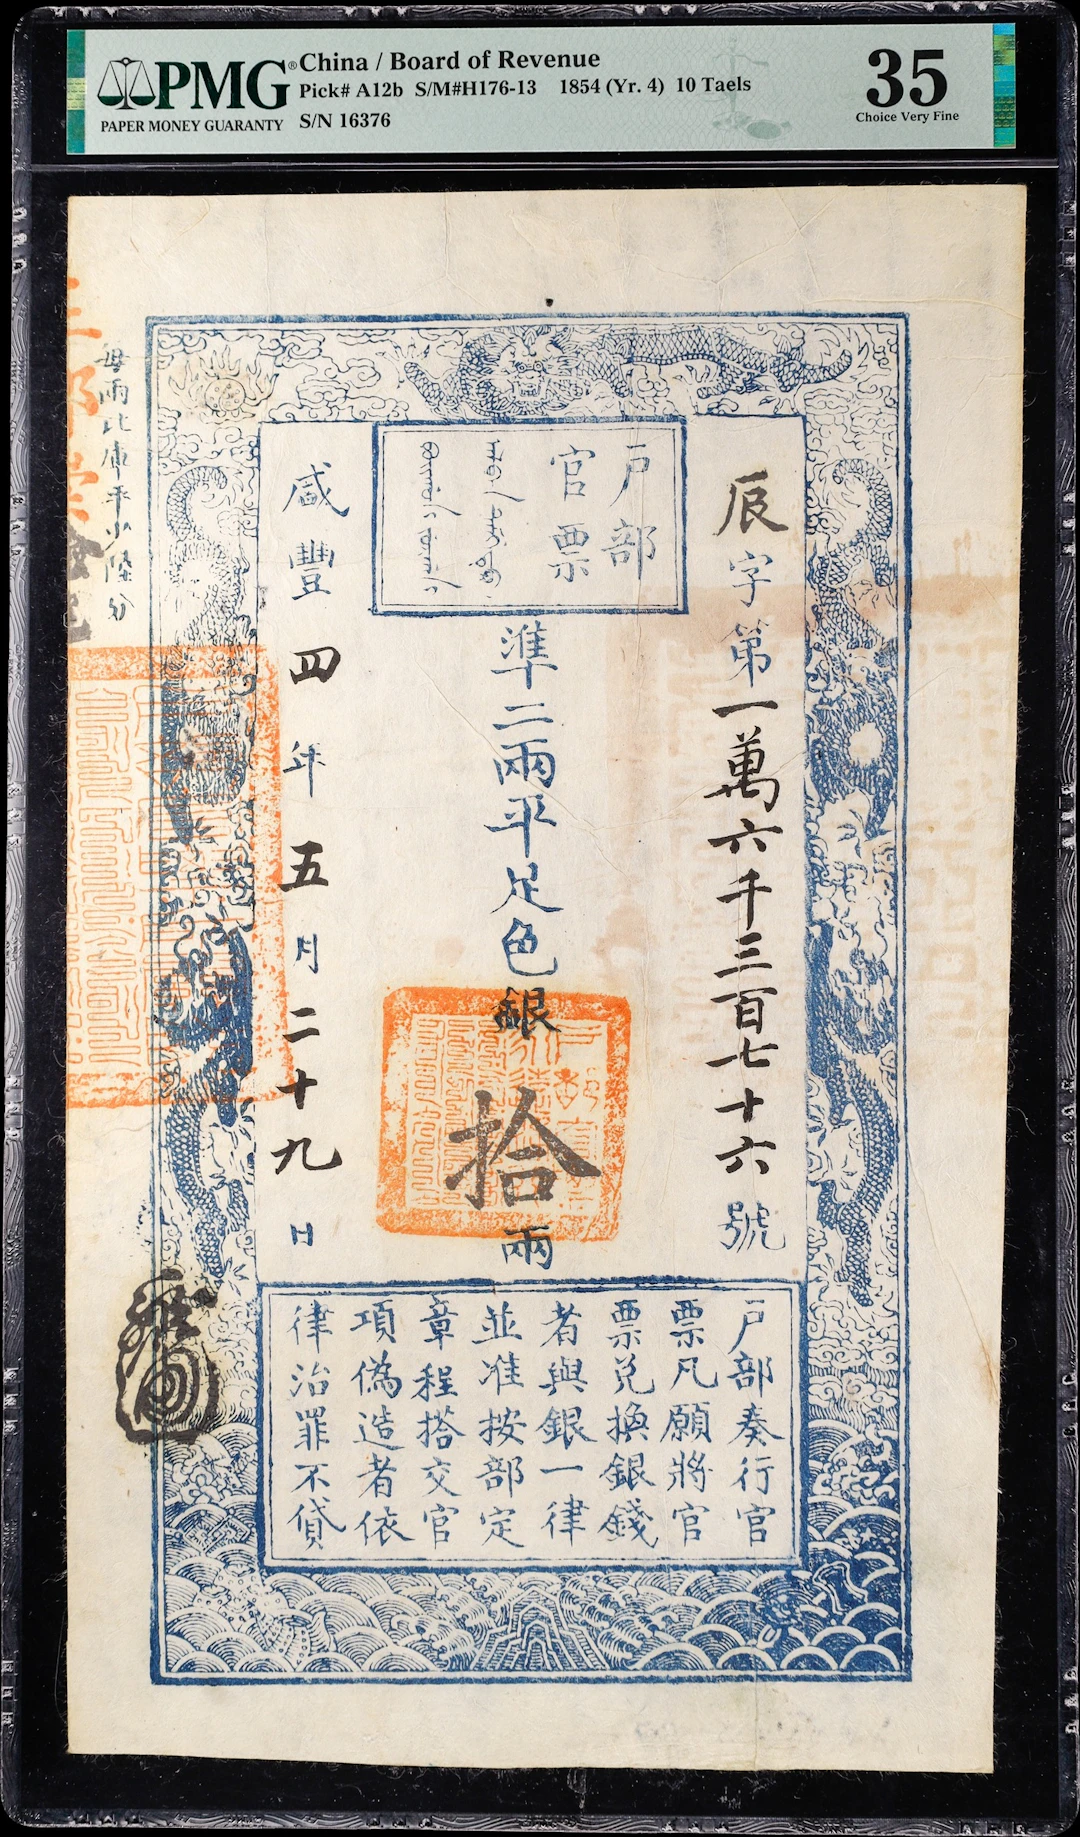 PMG®
PAPER MONEY GUARANTY
China / Board of Revenue
Pick# A12b S/M#H176-13 1854 (Yr. 4) 10 Taels
S/N 16376
35
Choice Very Fine
戶部
官票
辰字第一萬六千三百七十六號
準二兩平足色銀拾兩
咸豐四年五月二十九日
每兩比庫平少陸分
戶部奏行官
票凡願將官
票兌換銀錢
者與銀一律
並准按部定
章程搭交官
項偽造者依
律治罪不貸